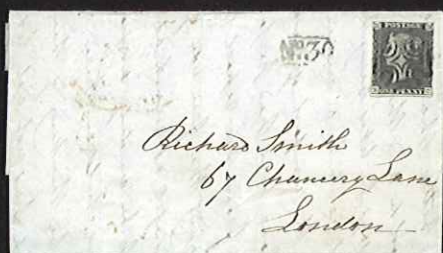 POSTAGE
No. 30
ONE PENNY
Richard Smith
67 Chancery Lane
London